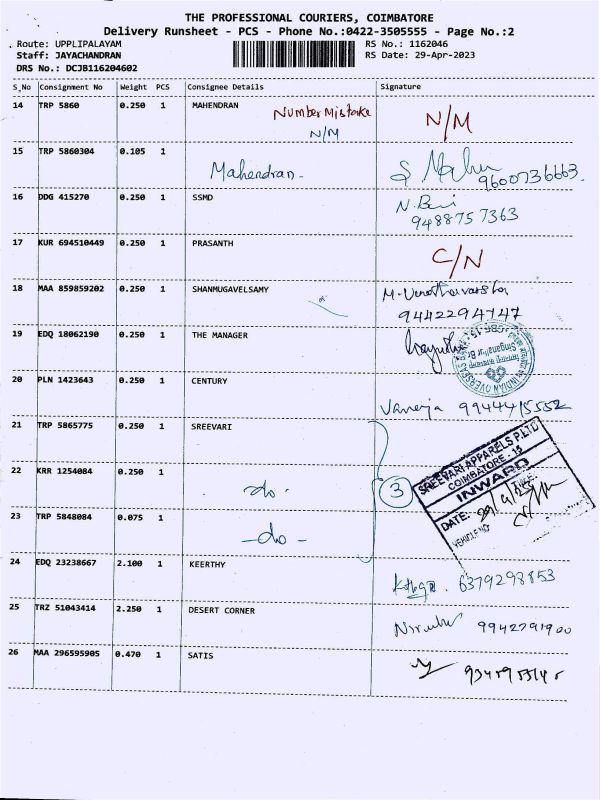 THE PROFESSIONAL COURIERS, COIMBATORE
Delivery Runsheet - PCS - Phone No.:0422-3505555 - Page No.:2
Route: UPPLIPALAYAM RS No.: 1162046
Staff: JAYACHANDRAN RS Date: 29-Apr-2023
DRS No.: DCJB116204602
S_No Consignment No Weight PCS Consignee Details Signature
14 TRP 5860 0.250 1 MAHENDRAN
Number Mistake N/M
N/M
15 TRP 5860304 0.105 1
Mahendran-
9600736663.
16 DDG 415270 0.250 1 SSMD
9488757363
17 KUR 694510449 0.250 1 PRASANTH
C/N
18 MAA 859859202 0.250 1 SHANMUGAVELSAMY
9442294747
19 EDQ 18062190 0.250 1 THE MANAGER
INDIAN OVERSEAS
Singanallur Br
20 PLN 1423643 0.250 1 CENTURY
Vaneja 9944415552
21 TRP 5865775 0.250 1 SREEVARI
SREEVARI APPARELS P.LTD
COIMBATORE - 15
INWARD
22 KRR 1254084 0.250 1
do. 3
DATE: 29/4/23
VEHICLE NO
23 TRP 5848084 0.075 1
-do-
24 EDQ 23238667 2.100 1 KEERTHY
6379298853
25 TRZ 51043414 2.250 1 DESERT CORNER
9942791900
26 MAA 296595905 0.470 1 SATIS